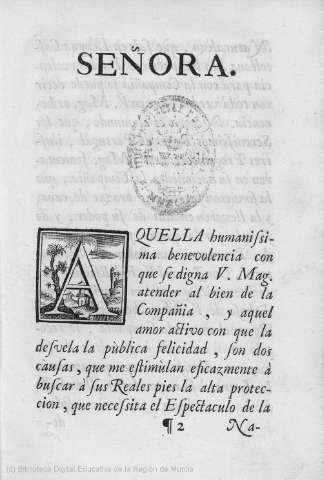 SEÑORA.
AQUELLA humaniſsi-
ma benevolencia con
que ſe digna V. Mag.
atender al bien de la
Compañia , y aquel
amor activo con que la
deſvela la pùblica felicidad , ſon dos
cauſas , que me eſtimulan eficazmente à
buſcar à ſus Reales pies la alta protec-
cion , que neceſsita el Eſpectaculo de la
¶ 2 Na-
(c) Biblioteca Digital Educativa de la Región de Murcia